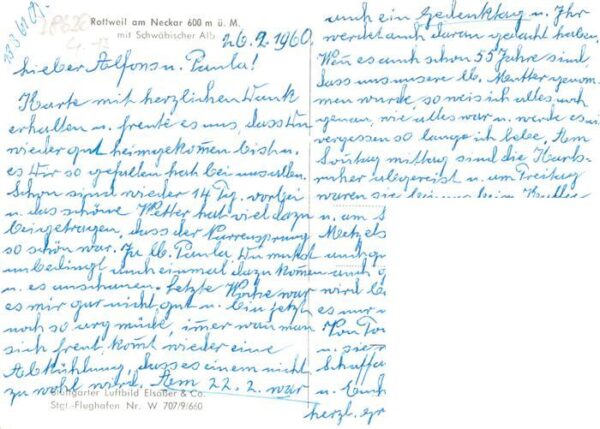 Rottweil am Neckar 600 m ü. M.
mit Schwäbischer Alb
26.2.1960.
Lieber Alfons u. Paula!
Karte mit herzlichen Dank
erhalten u. freute es uns, dass Du
wieder gut heimgekomen bist u.
es Dir so gefallen hat bei uns allen.
Schon sind wieder 14 Tg. vorbei
u. das schöne Wetter hat viel dazu
beigetragen, dass der Narrensprung
so schön war. Du lb. Paula, Du musst
unbedingt auch einmal dazu komen
u. es anschauen. Letzte Woche war
es mir gar nicht gut u. bin jetzt
noch so arg müde, imer wan man
sich freut, komt wieder eine
Abkühlung, dass es einem nicht
zu wohl wird. Am 22. 2. war
Stuttgarter Luftbild Elsäßer & Co.
Stgt.-Flughafen Nr. W 707/9/660
auch ein Gedenktag u. Ihr
werdet auch daran gedacht haben.
Wen es auch schon 55 Jahre sind,
dass uns unsere lb. Mutter genom-
men wurde, so weis ich alles noch
genau, wie alles war u. werde es nie
vergessen so lange ich lebe. Am
Sontag mittag sind die Karls-
ruher abgereist u. am Freitag
waren sie bei uns beim
u. am S
Metzels
auch g
wird b
es nur
Von To
u. sie
Schaffa
u. Euch
herzl. gr